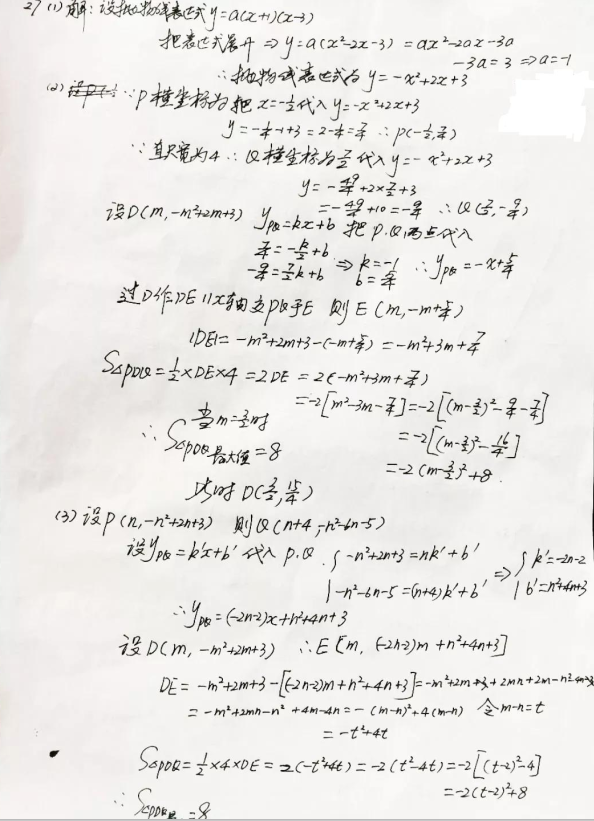 27 (1) 解：设抛物线表达式 y=a(x+1)(x-3)
把表达式展开 ⇒ y=a(x²-2x-3) = ax²-2ax-3a
-3a=3 ⇒ a=-1
∴ 抛物线表达式为 y=-x²+2x+3
(2) ∵ P横坐标为 把 x=-1/2 代入 y=-x²+2x+3
y=-1/4-1+3=2-1/4=7/4 ∴ P(-1/2, 7/4)
∵ 直尺宽为4 ∴ Q横坐标为 7/2 代入 y=-x²+2x+3
y=-49/4+2×7/2+3
=-49/4+10=-9/4 ∴ Q(7/2, -9/4)
设D(m, -m²+2m+3) y_PQ=kx+b 把 P.Q 两点代入
7/4=-k/2+b
-9/4=7/2k+b ⇒ k=-1 b=5/4 ∴ y_PQ=-x+5/4
过D作DE∥x轴交PQ于E 则E(m, -m+5/4)
|DE|= -m²+2m+3-(-m+5/4) = -m²+3m+7/4
S△PDQ=1/2×DE×4=2DE = 2(-m²+3m+7/4)
=-2[m²-3m-7/4]=-2[(m-3/2)²-9/4-7/4]
当m=3/2时
=-2[(m-3/2)²-16/4]
∴ S△PDQ最大值=8
=-2(m-3/2)²+8.
此时 D(3/2, 15/4)
(3) 设P(n, -n²+2n+3) 则Q(n+4, -n²-6n-5)
设y_PQ=k'x+b' 代入 P.Q. { -n²+2n+3=nk'+b'
-n²-6n-5=(n+4)k'+b' ⇒ { k'=-2n-2 b'=n²+4n+3
∴ y_PQ=(-2n-2)x+n²+4n+3
设D(m, -m²+2m+3) ∴E[m, (-2n-2)m+n²+4n+3]
DE= -m²+2m+3-[(-2n-2)m+n²+4n+3]=-m²+2m+3+2mn+2m-n²-4n-3
= -m²+2mn-n²+4m-4n=-(m-n)²+4(m-n) 令m-n=t
=-t²+4t
S△PDQ=1/2×4×DE=2(-t²+4t)=-2(t²-4t)=-2[(t-2)²-4]
=-2(t-2)²+8
∴ S△PDQ =8